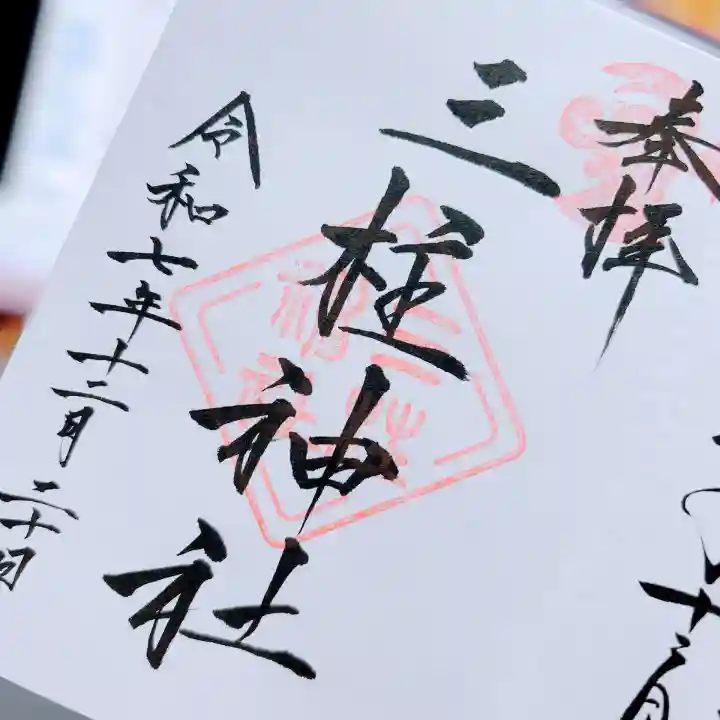 奉拝
三柱神社
令和七年十二月二十日
十二月